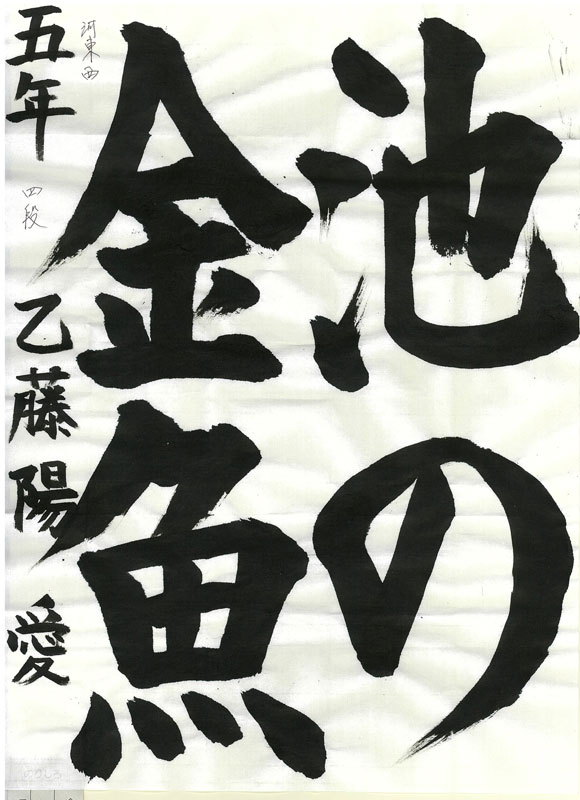 池の
金魚
河東西
五年 四段 乙藤陽愛